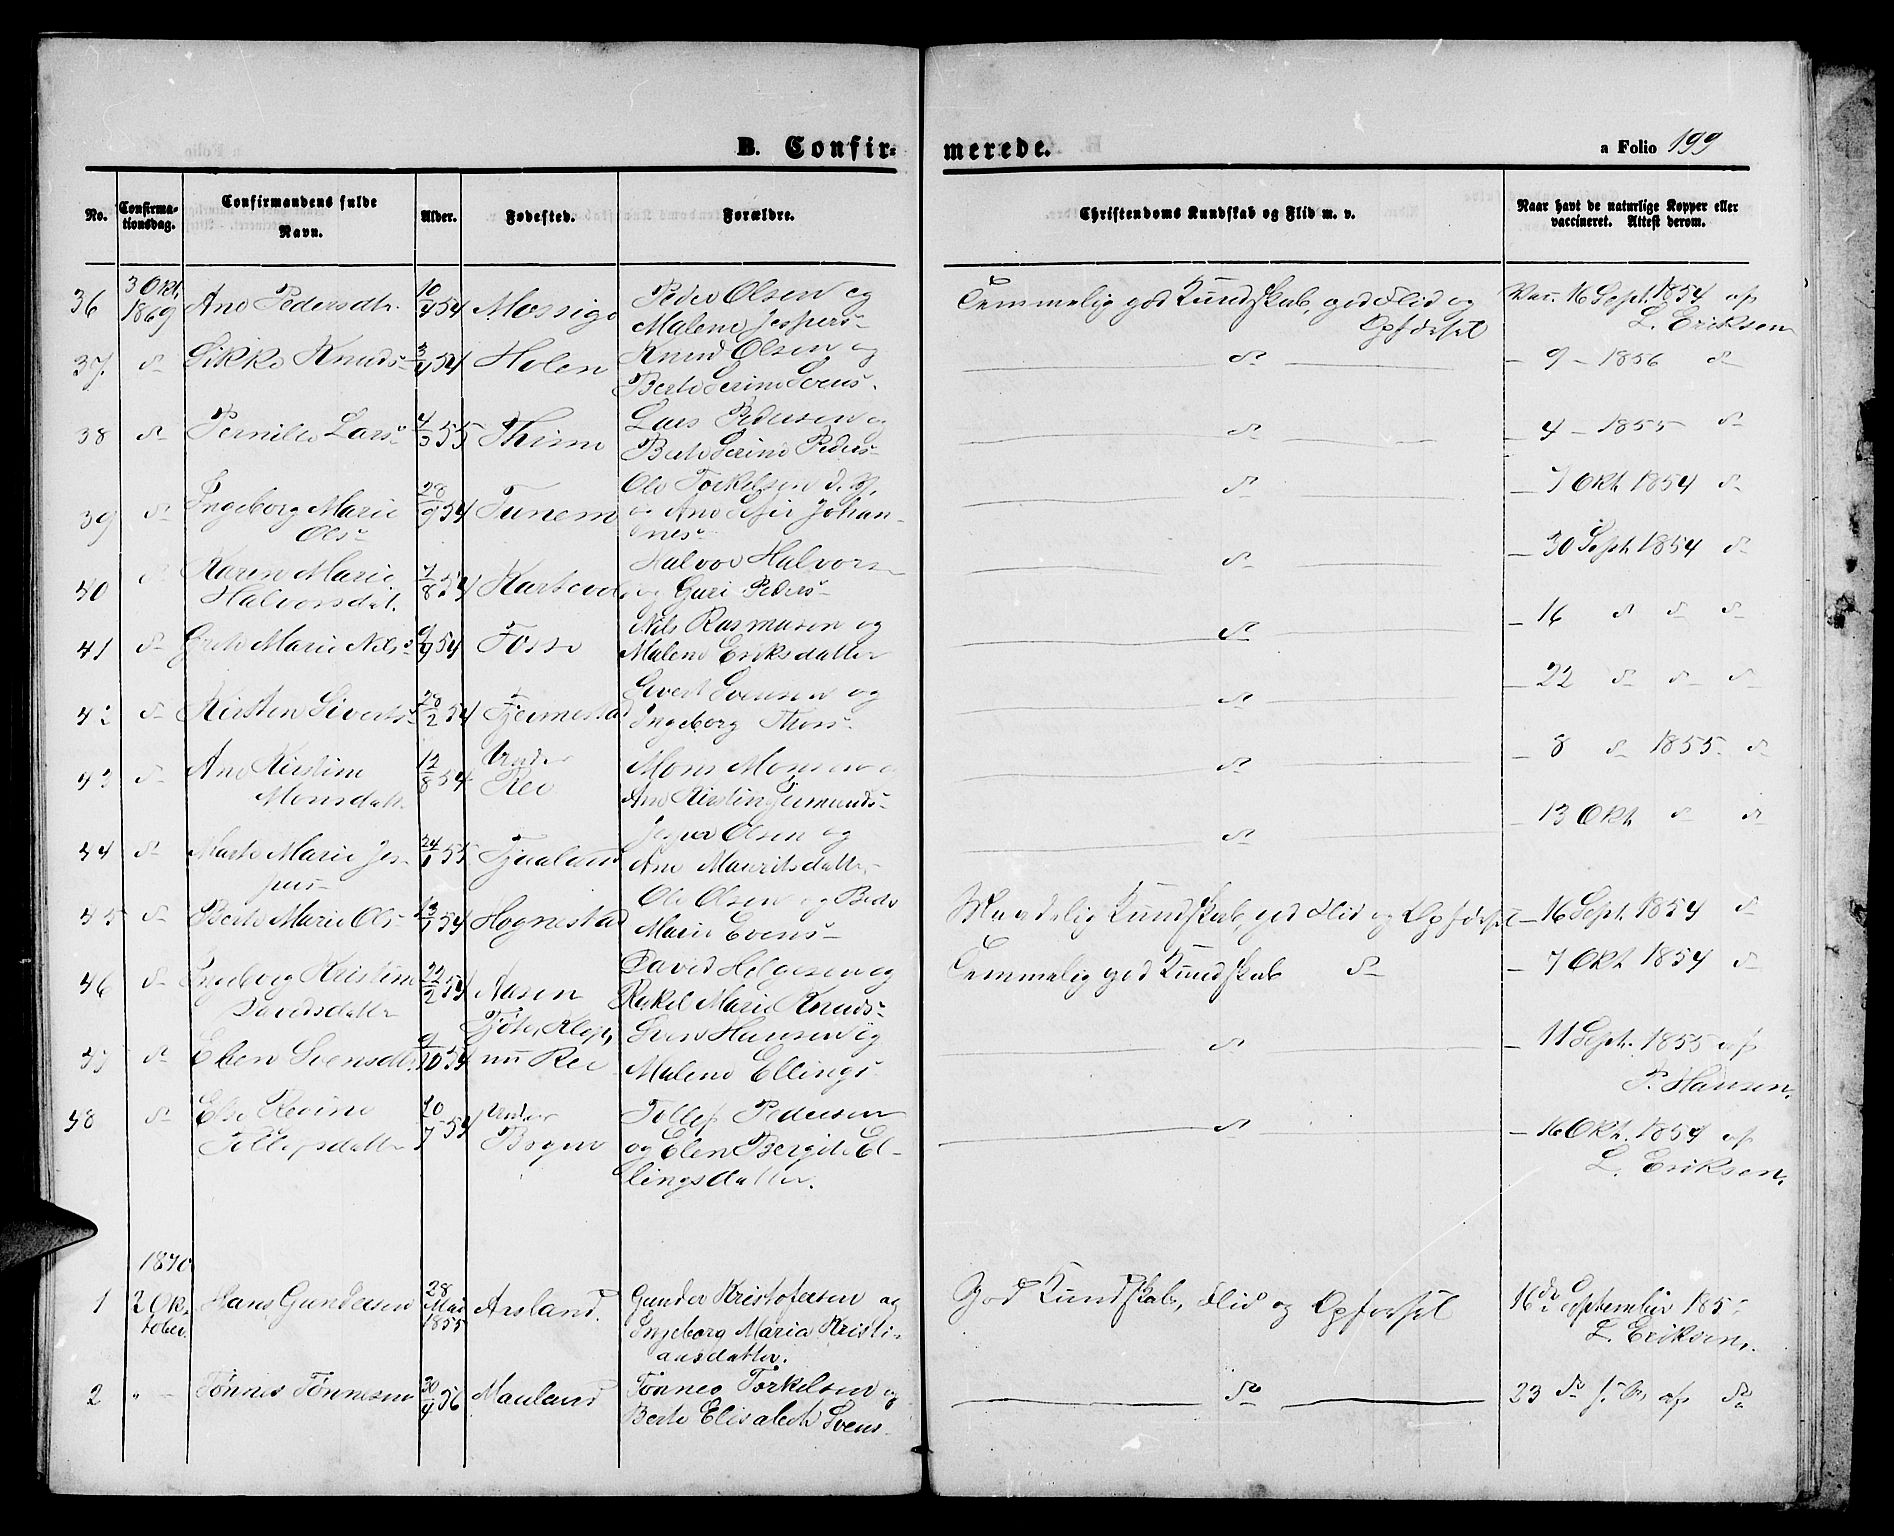 B. Confir=
merede.
a Folio 199
No.
Confirma-
tionsdag.
Confirmandens fulde
Navn.
Alder.
Fødested.
Forældre.
Christendoms Kundskab og Flid m. v.
Naar havt de naturlige Kopper eller
vaccineret. Attest derom.
36 3 Okt. 1869 Ane Pedersdtr. 10/4 54 Mossige Peder Olsen og
Malene Jespers- Temmelig god Kundskab, god Flid og
Opførsel Vac. 16 Sept. 1854 af
L. Eriksen
37 do Sikke Knuds- 3/4 54 Holen Knud Olsen og
Berte Serine Svens- do - 9 - 1856 do
38 do Pernille Lars- 4/3 55 Thime Lars Pedersen og
Berte Serine Peders- do - 4 - 1855 do
39 do Ingeborg Marie
Ols- 28/9 54 Tunem Ole Torkelsen d. y.
og Ane Johan-
nes- do - 7 Okt. 1854 do
40 do Karen Marie
Halvorsdat. 7/8 54 Halvor Halvors-
og Guri Peders- do - 30 Sept. 1854 do
41 do Grete Marie Nils- 54 Fosse Nils Rasmusen og
Malene Eriksdatter do - 16 do do do
42 do Kirsten Siverts- 28/2 54 Fjermestad Sivert Svensen og
Ingeborg Thors- do - 22 do do do
43 do Ane Kirstine
Monsdatter 12/8 54 Under
Ree Mons Monsen o
Ane Kirstin Gjermunds- do - 8 do 1855 do
44 do Marte Marie Jes-
pers- 24/1 55 Jesper Olsen og
Ane Mauritsdatter do - 13 Okt. do do
45 do Berte Marie Ols- 54 Hognestad Ole Olsen og Berte
Marie Evens- Maadelig Kundskab, god Flid og Opførsel - 16 Sept. 1854 do
46 do Ingeborg Kristine
Davidsdatter 22/2 54 Aasen David Helgesen og
Rakel Marie Knuds- Temmelig god Kundskab do - 7 Okt. 1854 do
47 do Elen Svensdtr. 9/10 54 Tjøte, Klep,
nu Ree Sven Hansen og
Malene Ellings- do - 11 Sept. 1855 af
P. Hansen.
48 do Else Revine
Tollefsdatter 10/7 54 Under
Bryne Tollef Pedersen
og Elen Bergite El-
lingsdatter. do - 16 Okt. 1854 af
L. Eriksen.
1870
1 2 Ok-
tober. Hans Gundersen 28
Mai
1855 Aasland. Gunder Kristofersen og
Ingeborg Maria Kristi-
ansdatter. God Kundskab, Flid og Opførsel 16de September 185
L. Eriksen.
2 " Tønnes Tønnesen 30/4 56 Mauland Tønnes Torkelsen og
Berte Elisabeth Svens- do 23 do af do